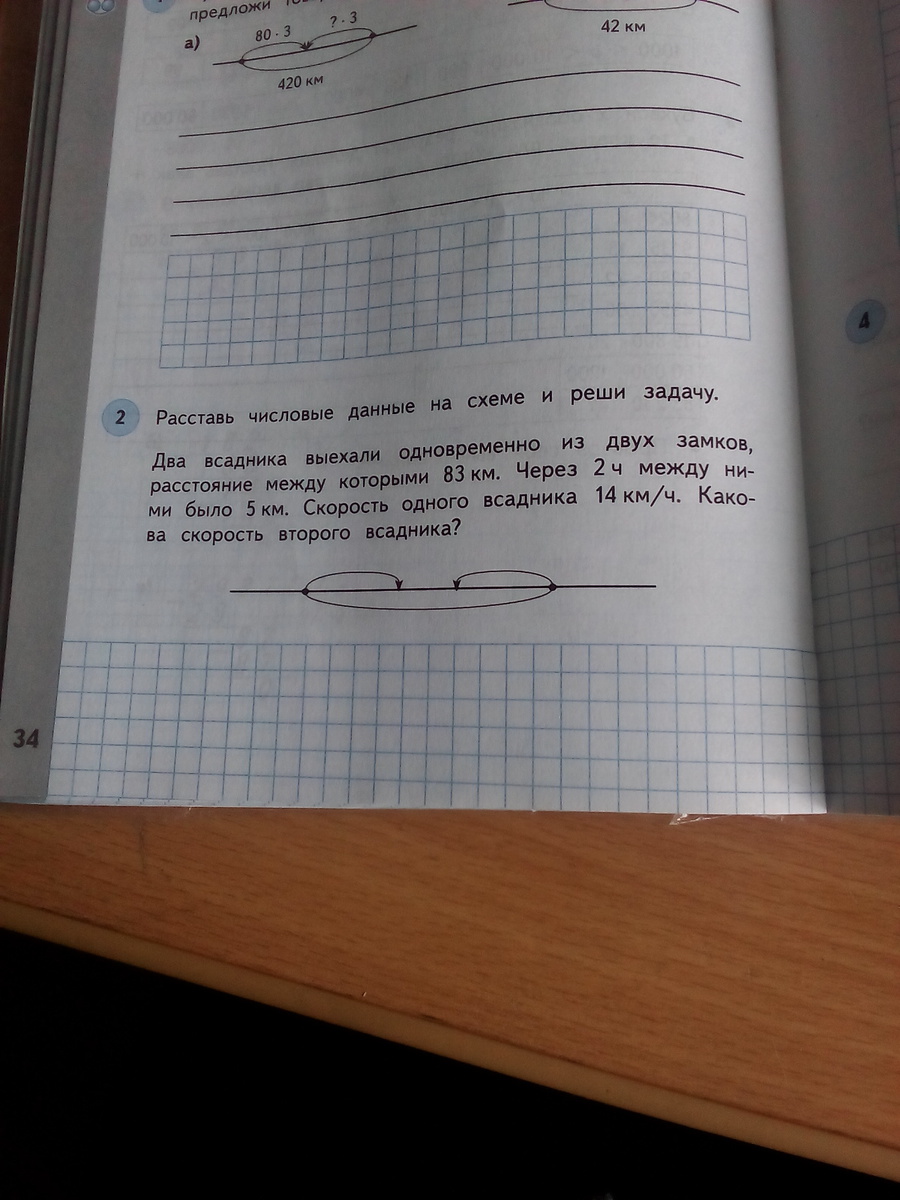 предложи
а)
80 · 3
? · 3
420 км
42 км
4
2 Расставь числовые данные на схеме и реши задачу.
Два всадника выехали одновременно из двух замков,
расстояние между которыми 83 км. Через 2 ч между ни-
ми было 5 км. Скорость одного всадника 14 км/ч. Како-
ва скорость второго всадника?
34